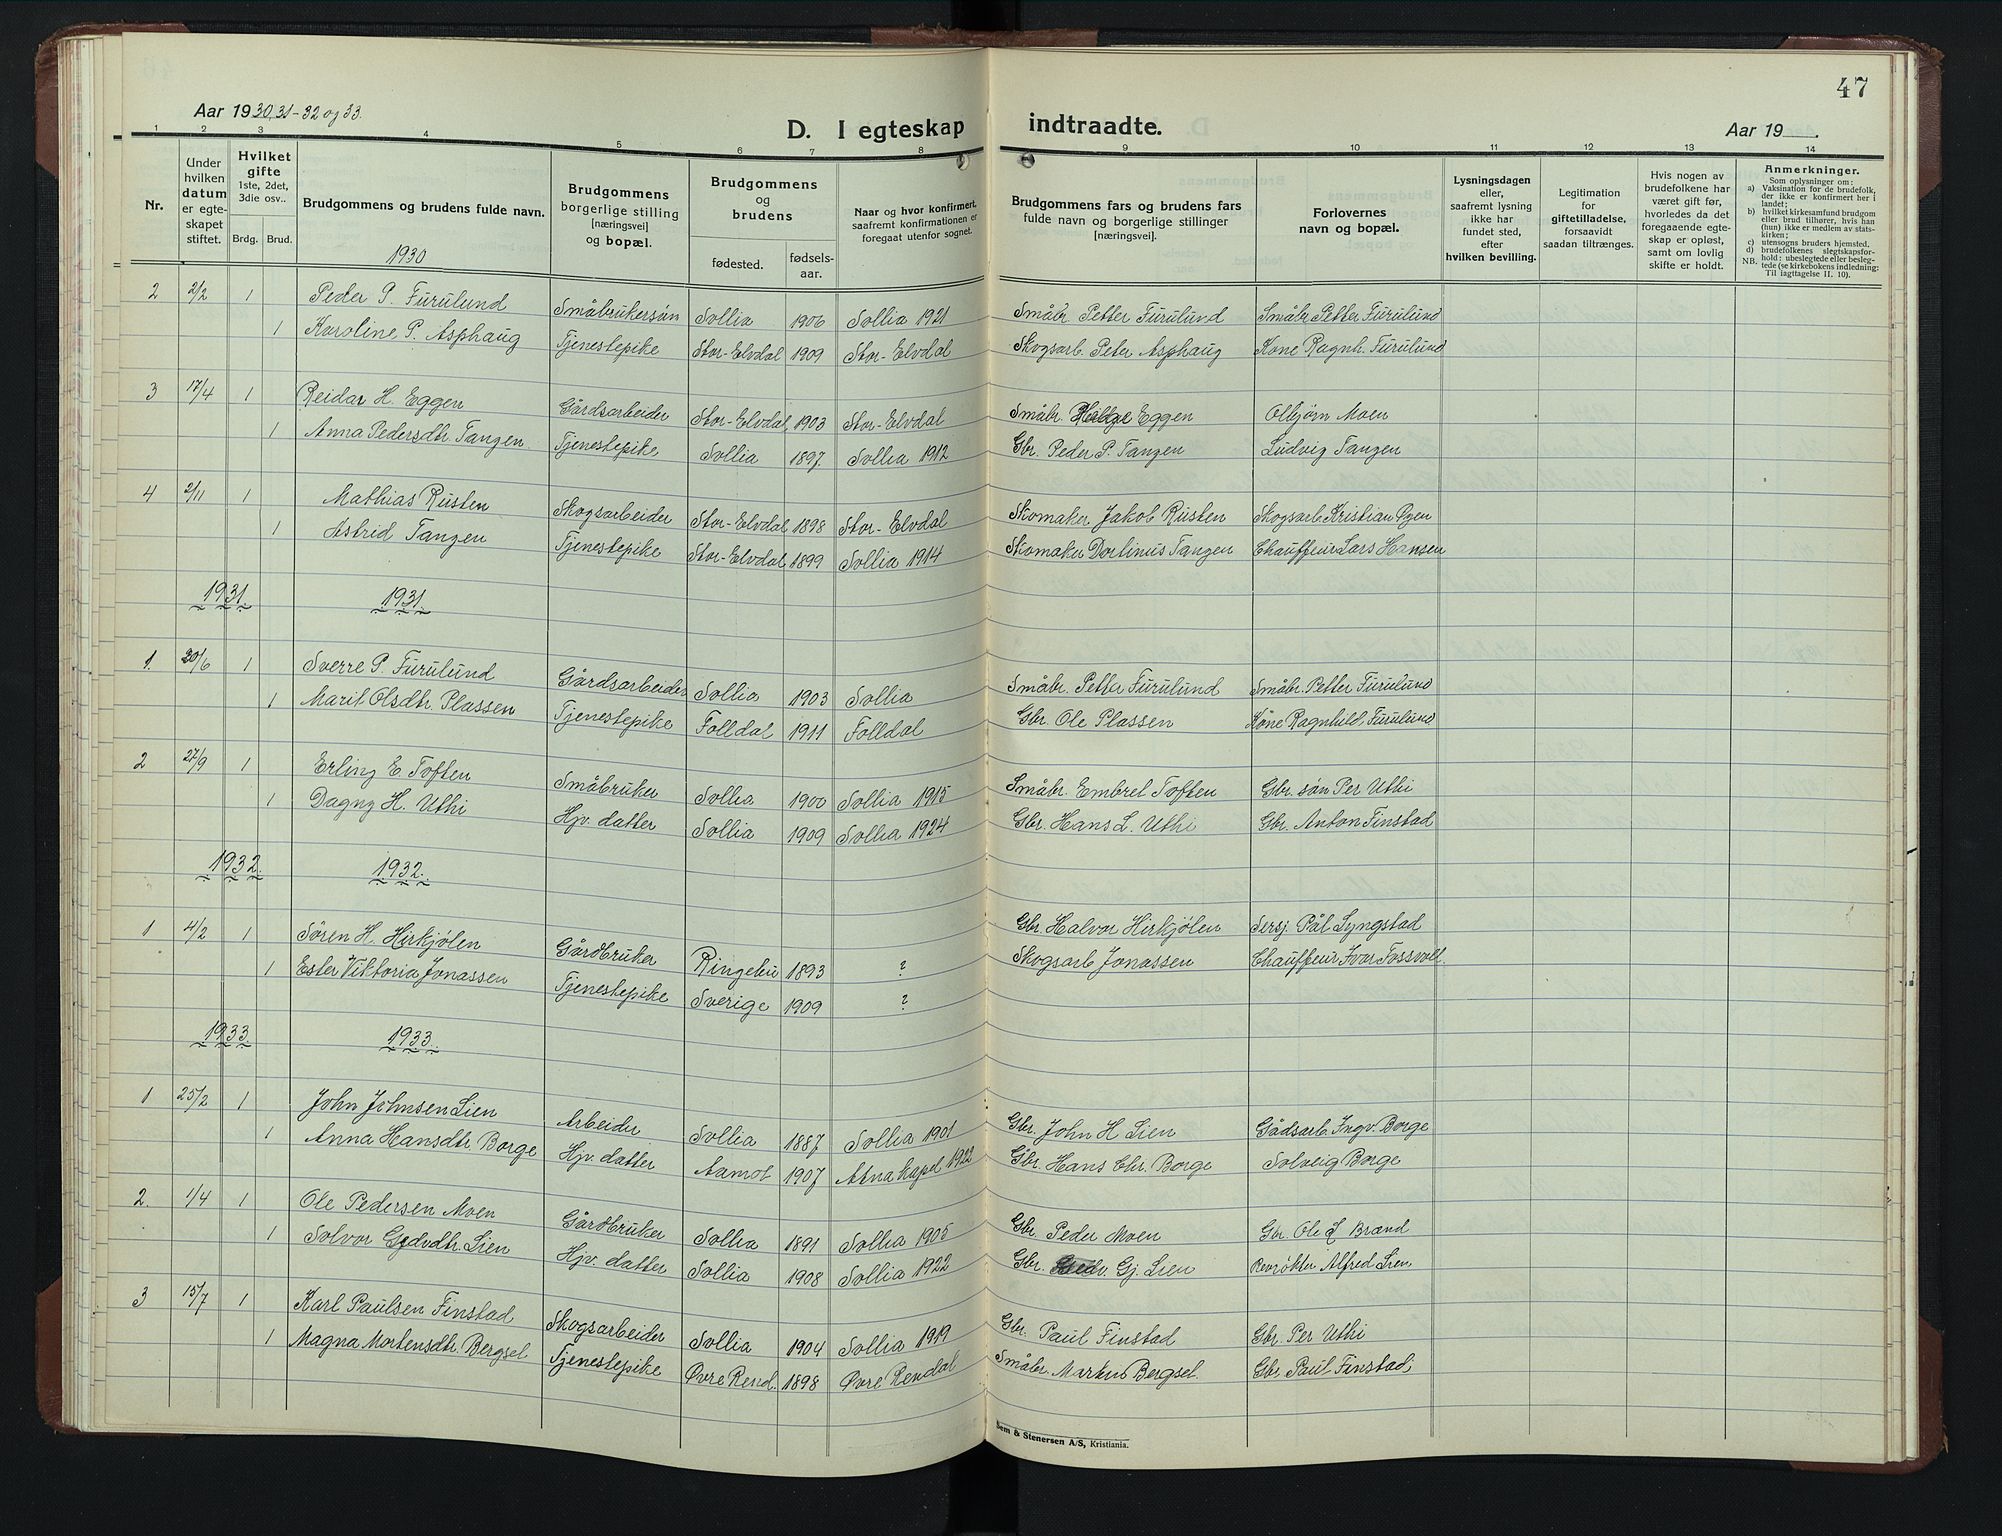 47
Aar 1930, 31-32 og 33.
D. I egteskap indtraadte.
Aar 19
1 2 3 4 5 6 7 8 9 10 11 12 13 14
Nr.
Under hvilken datum er egteskapet stiftet.
Hvilket gifte 1ste, 2det, 3die osv..
Brdg. Brud.
Brudgommens og brudens fulde navn.
Brudgommens borgerlige stilling [næringsvei] og bopæl.
Brudgommens og brudens
fødested. fødselsaar.
Naar og hvor konfirmert, saafremt konfirmationen er foregaat utenfor sognet.
Brudgommens fars og brudens fars fulde navn og borgerlige stillinger [næringsvei].
Forlovernes navn og bopæl.
Lysningsdagen eller, saafremt lysning ikke har fundet sted, efter hvilken bevilling.
Legitimation for giftetilladelse, forsaavidt saadan tiltrænges.
Hvis nogen av brudefolkene har været gift før, hvorledes da det foregaaende egteskap er opløst, samt om lovlig skifte er holdt.
Anmerkninger.
Som oplysninger om:
a) Vaksination for de brudefolk, der ikke er konfirmert her i landet;
b) hvilket kirkesamfund brudgom eller brud tilhører, hvis han (hun) ikke er medlem av statskirken;
c) utensogns bruders hjemsted.
d) brudefolkenes slegtskapsforhold: ubeslegtede eller beslegtede (se kirkebokens indledning:
NB. Til iagttagelse II. 10).
1930
2 2/2 1 Peder P. Furulund Småbrukersøn Sollia 1906 Sollia 1921 Småbr. Petter Furulund Småbr. Petter Furulund
1 Karoline P. Asphaug Tjenestepike Stor-Elvdal 1909 Stor-Elvdal Skogsarb. Peter Asphaug Kone Ragnh. Furulund
3 17/4 1 Reidar H. Eggen Gårdsarbeider Stor-Elvdal 1903 Stor-Elvdal Småbr. Helge Eggen Olbjørn Moen
1 Anna Pedersdtr. Tangen Tjenestepike Sollia 1897. Sollia 1912 Gbr. Peder P. Tangen Ludvig Tangen
4 2/11 1 Mathias Rusten Skogsarbeider Stor-Elvdal 1898 Stor-Elvdal Skomaker Jakob Rusten Skogsarb. Kristian
1 Astrid Tangen Tjenestepike Stor-Elvdal 1899 Sollia 1914 Skomaker Dorlinus Tangen Chauffeur Lars Hansen
1931 1931.
1. 30/6 1 Sverre P. Furulund Gårdsarbeider Sollia 1903 Sollia Småbr. Petter Furulund Småbr. Petter Furulund
1 Marit Olsdtr. Plassen Tjenestepike Folldal 1911 Folldal Gbr. Ole Plassen Kone Ragnhild Furulund
2 27/9 1 Erling E. Toften Småbruker Sollia 1900 Sollia 1915 Småbr. Embret Toften Gbr. søn Per Uthi
1 Dagny H. Uthi Hjv. datter Sollia 1909 Sollia 1924 Gbr. Hans L. Uthi Gbr. Anton Finstad
1932. 1932.
1 4/2 1 Søren H. Hirkjølen Gårdbruker Ringebu 1893 ? Gbr Halvor Hirkjølen Sersj. Pål Lyngstad
1 Ester Viktoria Jonassen Tjenestepike Sverige 1909 ? Skogsarb Jonassen Chauffeur Ivar Fossvoll.
1933. 1933.
1 25/2 1 John Johnsen Lien Arbeider Sollia 1887 Sollia 1901 Gbr. John H Lien Gådsarb. Ingv. Borge
1 Anna Hansdtr. Borge Hjv. datter Aamot 1907 Atna kapel 1922 Gbr. Hans Chr. Borge Solveig Borge
2. 1/4 1 Ole Pedersen Moen Gårdbruker Sollia 1891 Sollia 1905 Gbr Peder Moen Gbr. Ole L Brænd
1 Solvor Gudvdtr. Lien Hjv. datter Sollia 1908 Sollia 1922 Gbr. Gudv. Gj. Lien Revrøkter Alfred Lien
3 15/7 1 Karl Paulsen Finstad Skogsarbeider Sollia 1904 Sollia 1919 Gbr. Paul Finstad Gbr. Per Uthi
1 Magna Mortensdtr. Bergset Tjenestepike Øvre Rend. 1898 Øvre Rendal Småbr. Bergset. Gbr. Paul Finstad
Sem & Stenersen A/S, Kristiania.